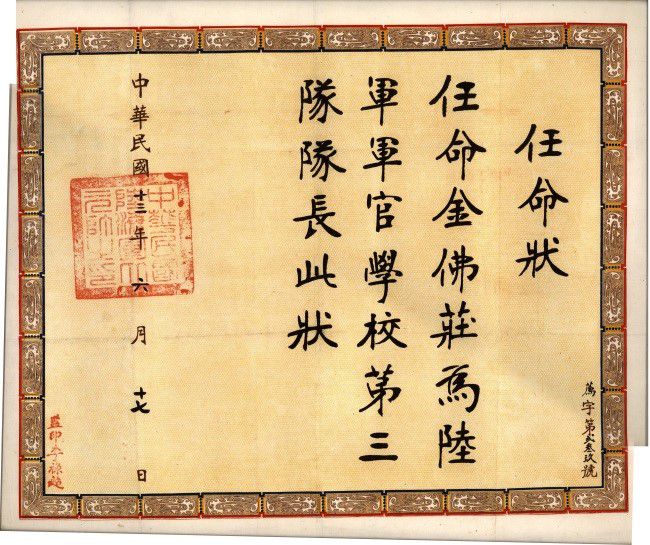 任命狀
任命金佛莊為陸
軍軍官學校第三
隊隊長此狀
中華民國十三年六月十七日
中華民國
陸海軍大
元帥之印
監印李祿超
薦字第叁玖號